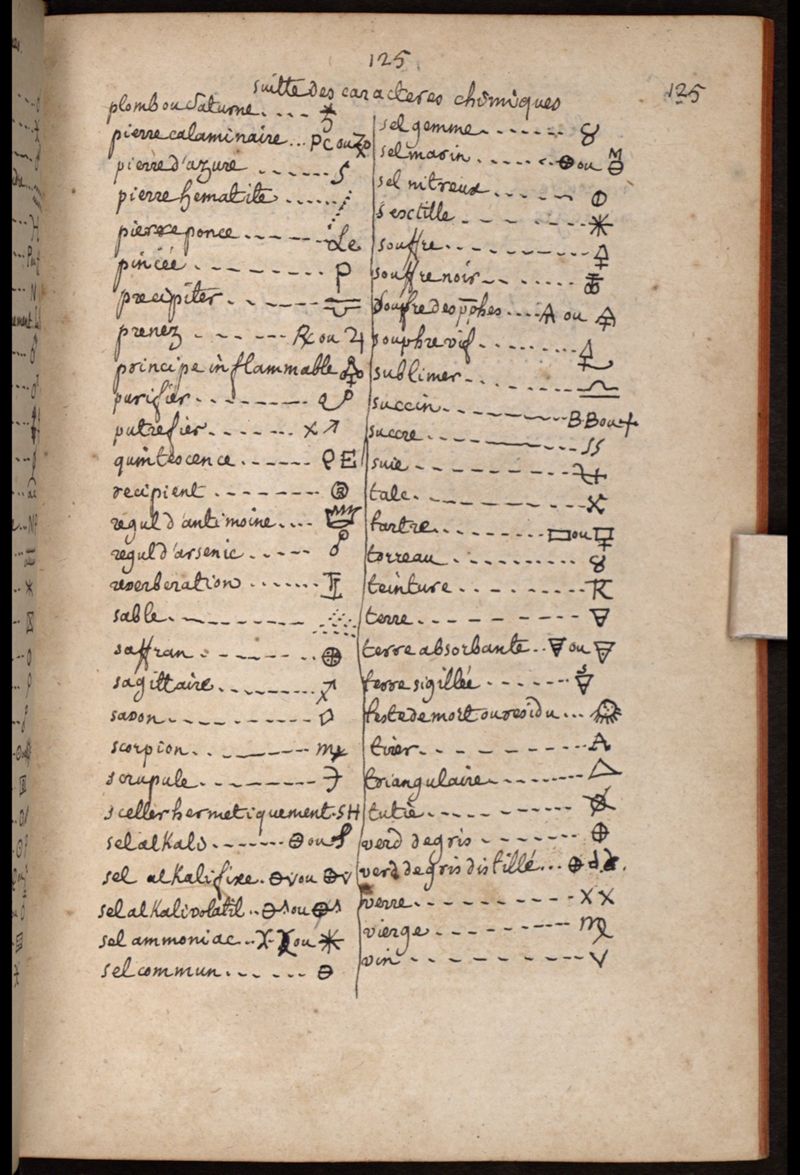 125
125
suitte des caracteres chimiques
plomb ou Saturne
pierre calaminaire ... PC ou
pierre d'azure
pierre hematite
pierre ponce
pincée ... P
precipiter
prenez ... ℞ ou ♃
principe inflammable
purifier
putrefier
quintescence ... QE
recipient ... Ⓡ
regul d'antimoine
regul d'arsenic
reverberation
sable
saffran
sagittaire ... ♐
savon
scorpion ... ♏
scrupule
sceller hermetiquement. SH
sel alkali ... ⊖ ou
sel alkali fixe. ⊖v ou ⊕v
sel alkali volatil .. ⊖^ ou ⊕^
sel ammoniac .. ou ✳
sel commun ... ⊖
sel gemme ... ♉
sel marin ... ⊕ ou
sel nitreux ... ⦶
sextille ... ✳
souffre ... 🜍
souffre noir
souffre des pphes ... ou
souphre vif
sublimer
succin ... BB ou
sucre ... SS
suie
talc ... X
tartre ... ▭ ou
torreau ... ♉
teinture
terre ... 🜃
terre absorbante .. ou
terre sigillée
teste de mort ou residu
tirer
triangulaire
tutie
verd de gris ... ⊕
verd de gris distillé ... ⊕
verre ... XX
vierge ... ♍
vin ... V